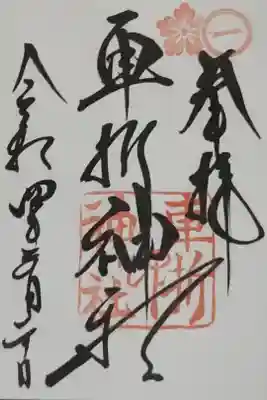 一
奉拝
車折神社
車折
神社
令和四年三月 日